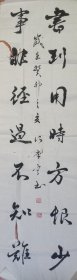 書到用時方恨少
事非經過不知難
歲在癸卯之